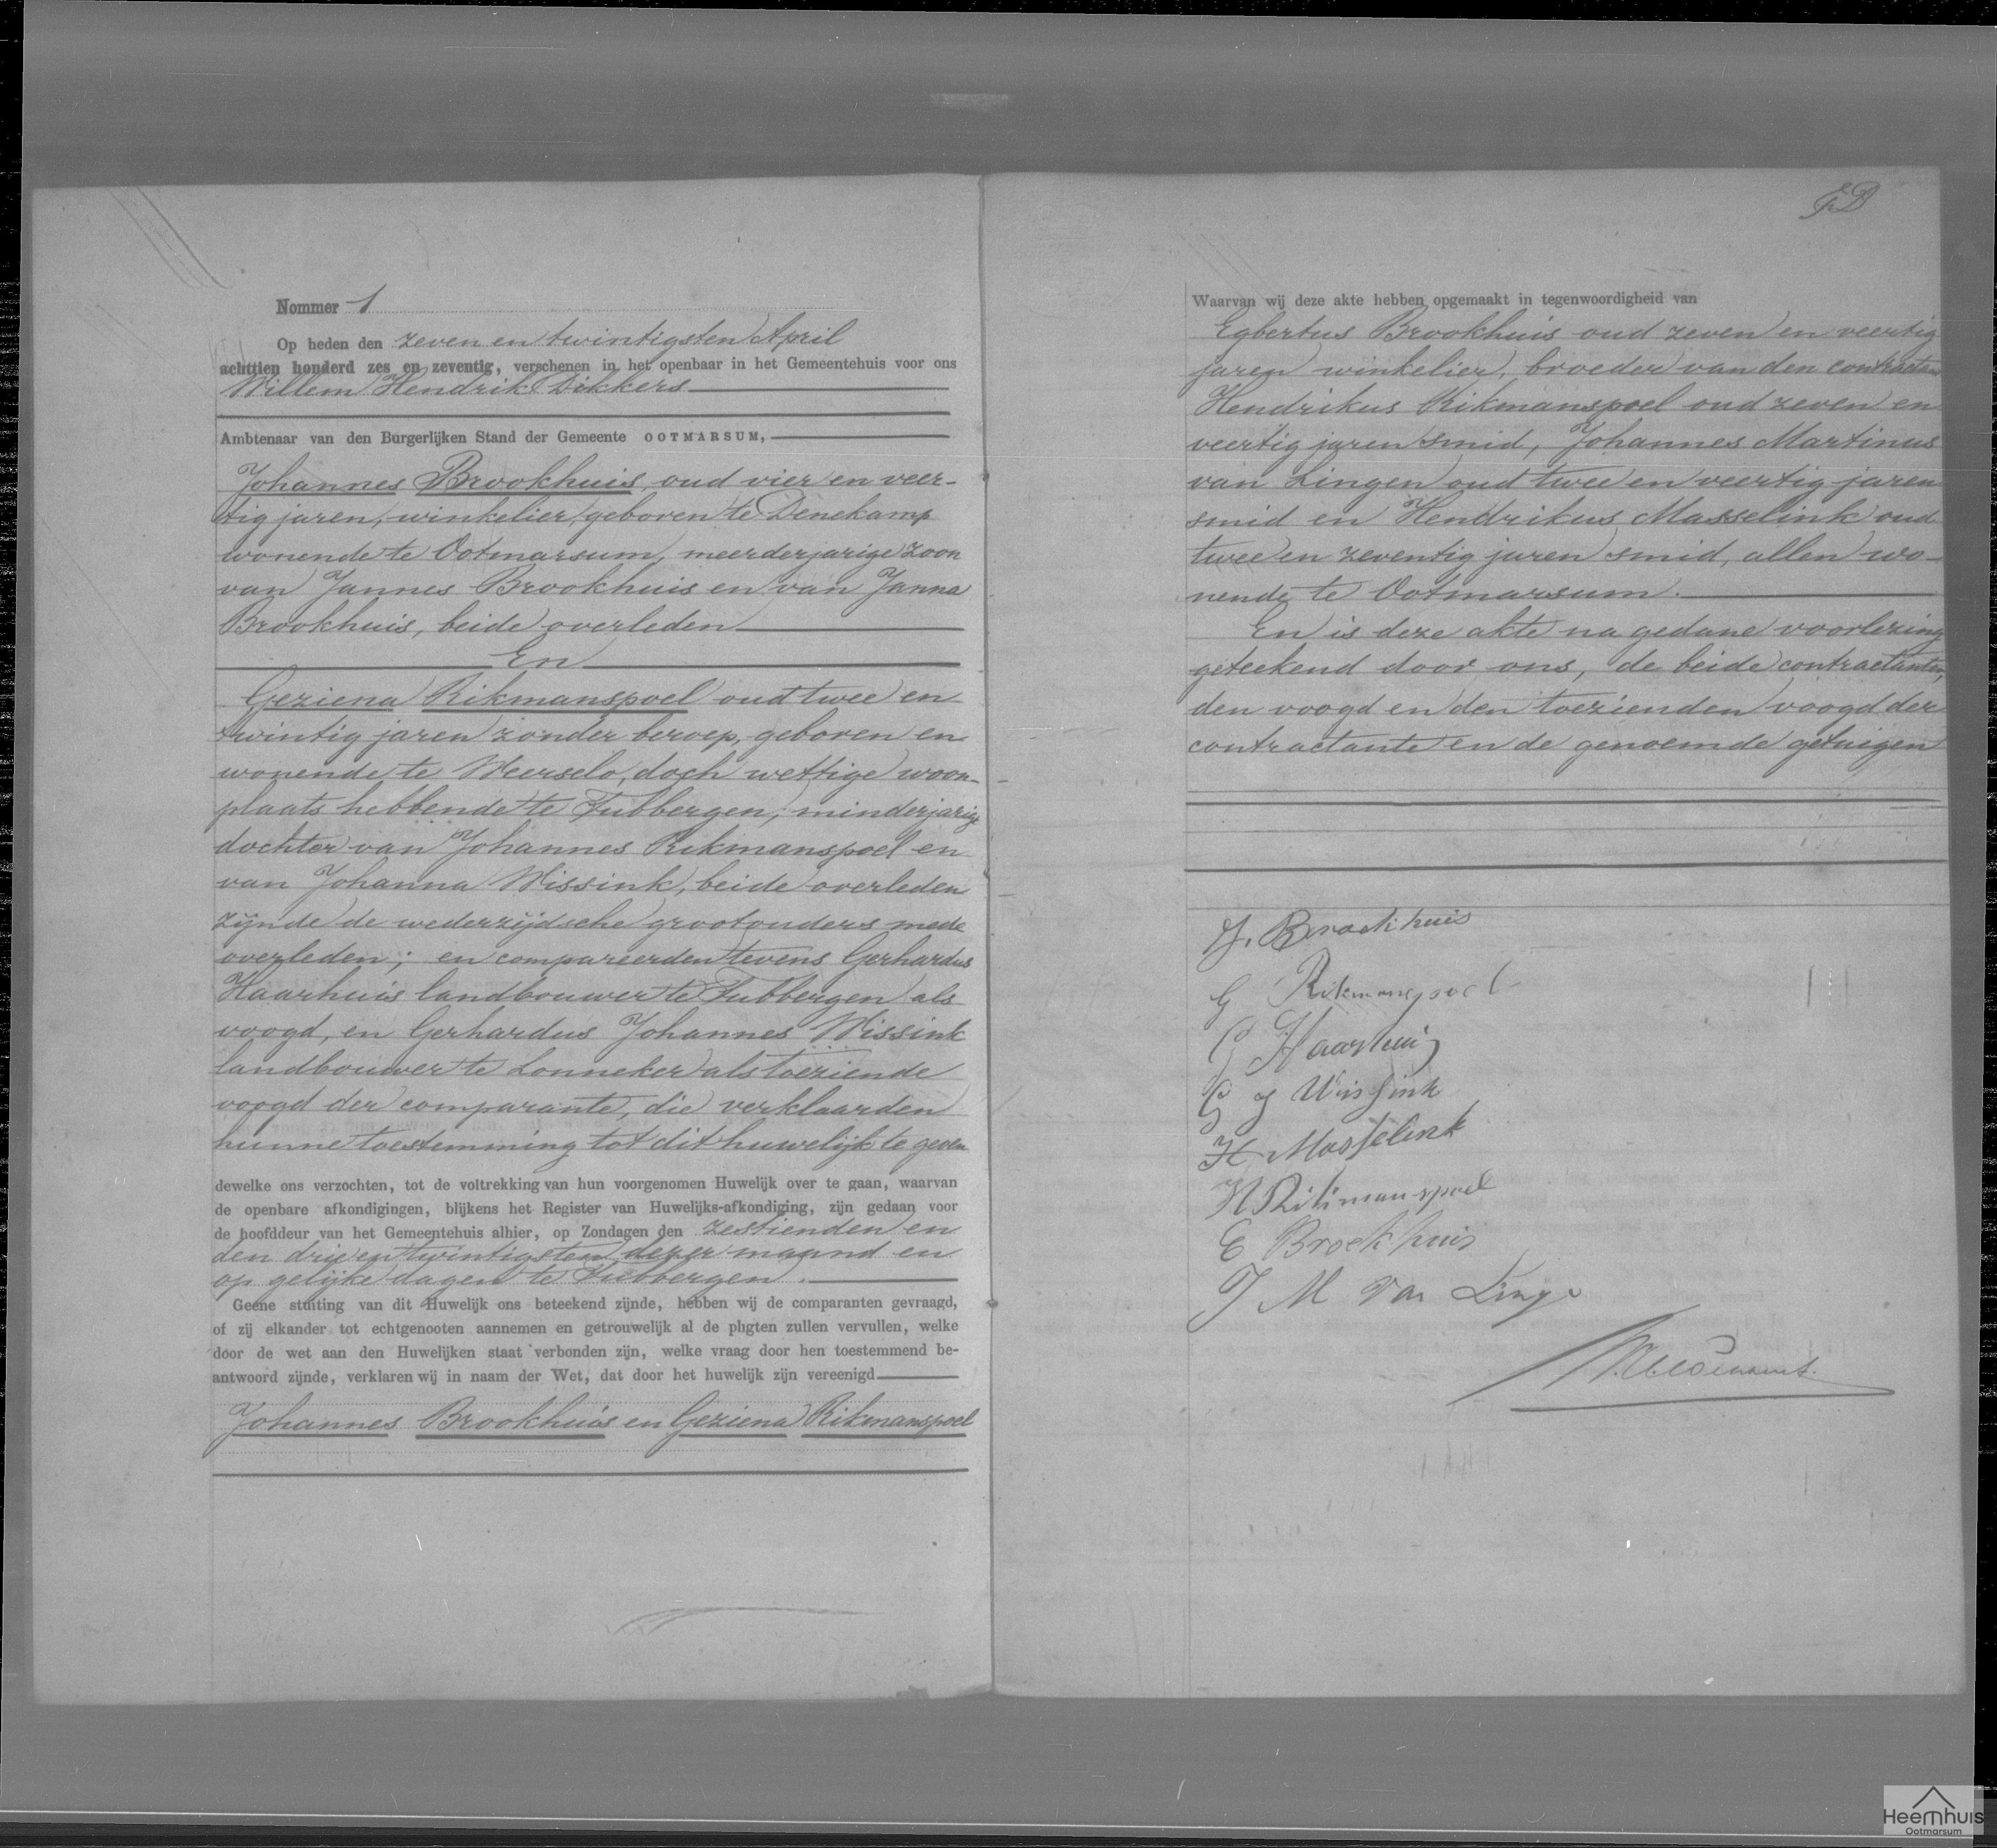 Nommer 1
Op heden den zeven en twintigsten April
achttien honderd zes en zeventig, verschenen in het openbaar in het Gemeentehuis voor ons
Willem Hendrik Dikkers
Ambtenaar van den Burgerlijken Stand der Gemeente OOTMARSUM,
Johannes Brookhuis, oud vier en veer-
tig jaren, winkelier, geboren te Denekamp
wonende te Ootmarsum, meerderjarige zoon
van Jannes Brookhuis en van Janna
Brookhuis, beide overleden
En
Geziena Rikmanspoel oud twee en
twintig jaren zonder beroep, geboren en
wonende te Weerselo, doch wettige woon-
plaats hebbende te Tubbergen, minderjarige
dochter van Johannes Rikmanspoel en
van Johanna Wissink, beide overleden
zijnde de wederzijdsche grootouders mede
overleden; en compareerden tevens Gerhardus
Haarhuis landbouwer te Tubbergen als
voogd, en Gerhardus Johannes Wissink
landbouwer te Lonneker als toeziende
voogd der comparante, die verklaarden
hunne toestemming tot dit huwelijk te geven
dewelke ons verzochten, tot de voltrekking van hun voorgenomen Huwelijk over te gaan, waarvan
de openbare afkondigingen, blijkens het Register van Huwelijks-afkondiging, zijn gedaan voor
de hoofddeur van het Gemeentehuis alhier, op Zondagen den zestienden en
den drie en twintigsten dezer maand en
op gelijke dagen te Tubbergen.
Geene stuiting van dit Huwelijk ons beteekend zijnde, hebben wij de comparanten gevraagd,
of zij elkander tot echtgenooten aannemen en getrouwelijk al de pligten zullen vervullen, welke
door de wet aan den Huwelijken staat verbonden zijn, welke vraag door hen toestemmend be-
antwoord zijnde, verklaren wij in naam der Wet, dat door het huwelijk zijn vereenigd
Johannes Brookhuis en Geziena Rikmanspoel
Waarvan wij deze akte hebben opgemaakt in tegenwoordigheid van
Egbertus Brookhuis oud zeven en veertig
jaren winkelier, broeder van den contractant
Hendrikus Rikmanspoel oud zeven en
veertig jaren smid, Johannes Martinus
van Lingen oud twee en veertig jaren
smid en Hendrikus Masselink oud
twee en zeventig jaren smid, allen wo-
nende te Ootmarsum.
En is deze akte na gedane voorlezing
geteekend door ons, de beide contractanten,
den voogd en den toezienden voogd der
contractante en de genoemde getuigen
J. Broekhuis
G Rikmanspoel
G Haarhuis
G J Wissink
H Masselink
H Rikmanspoel
E Broekhuis
J M van Linge
Heemhuis
Ootmarsum